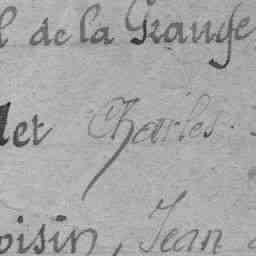 l de la Grange
let Charles.
oisin, Jean